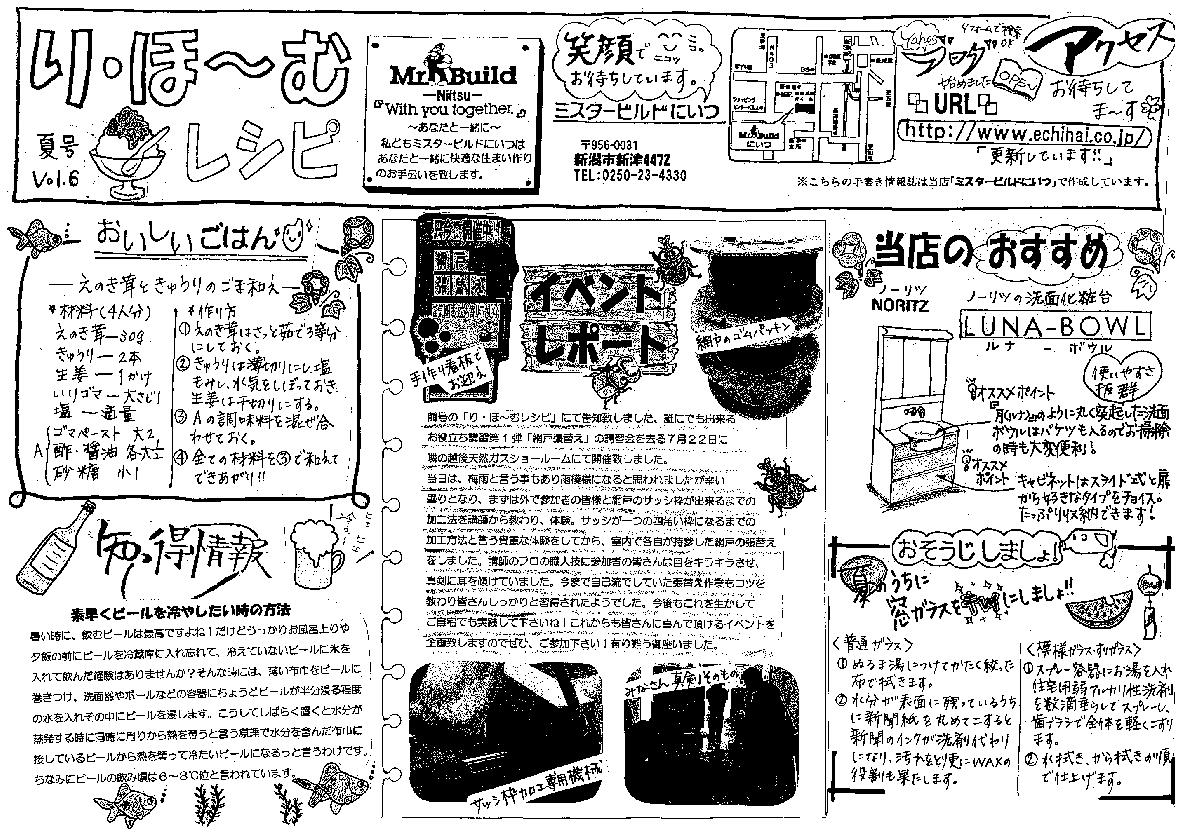 り・ほ〜む
レシピ
夏号
Vol.6
Mr.Build
—Niitsu—
"With you together."
〜あなたと一緒に〜
私どもミスタービルドにいつは
あなたと一緒に快適な住まい作り
のお手伝いを致します。
笑顔で ニコッ ニコッ
お待ちしています。
ミスタービルドにいつ
〒956-0031
新潟市新津4472
TEL:0250-23-4330
Mr.Build
にいつ
Yahoo!
ブログ
始めました
OPEN
アクセス
お待ちして
ま〜す
URL
http://www.echinai.co.jp/
「更新しています!!」
※こちらの手書き情報誌は当店「ミスタービルドにいつ」で作成しています。
おいしいごはん
—えのき茸ときゅうりのごま和え—
*材料(4人分)
えのき茸—30g
きゅうり—2本
生姜—1かけ
いりゴマ—大さじ1
塩—適量
A
ゴマペースト 大2
酢・醤油 各大1
砂糖 小1
*作り方
①えのき茸はさっと茹で3等分
にしておく。
②きゅうりは薄切りにし塩
もみし、水気をしぼっておき
生姜は千切りにする。
③Aの調味料を混ぜ合
わせておく。
④全ての材料を③で和えて
できあがり!!
知っ得情報
素早くビールを冷やしたい時の方法
暑い時に、飲むビールは最高ですよね!だけどうっかりお風呂上りや
夕飯の前にビールを冷蔵庫に入れ忘れて、冷えていないビールに氷を
入れて飲んだ経験はありませんか?そんな時には、薄い布巾をビールに
巻きつけ、洗面器やボールなどの容器にちょうどビールが半分浸る程度
の水を入れその中にビールを浸します。こうしてしばらく置くと水分が
蒸発する時に同時に周りから熱を奪うと言う原理で水分を含んだ布巾に
接しているビールから熱を奪って冷たいビールになるっと言うわけです。
ちなみにビールの飲み頃は6〜8℃位と言われています。
イベント
レポート
手作り看板で
お迎え
網戸のゴムパッキン
前号の「り・ほ〜むレシピ」にて告知致しました、誰にでも出来る
お役立ち講習第1弾「網戸張替え」の講習会を去る7月22日に
隣の越後天然ガスショールームにて開催致しました。
当日は、梅雨と言う事もあり雨模様になると思われましたが幸い
曇りとなり、まずは外で参加者の皆様と網戸のサッシ枠が出来るまでの
加工法を講師から教わり、体験。サッシが一つの四角い枠になるまでの
加工方法と言う貴重な体験をしてから、室内で各自が持参した網戸の張替え
をしました。講師のプロの職人技に参加者の皆さんは目をキラキラさせ、
真剣に耳を傾けていました。今まで自己流でしていた張替え作業もコツを
教わり皆さんしっかりと習得されたようでした。今後もこれを生かして
ご自宅でも実践して下さいね!これからも皆さんに喜んで頂けるイベントを
企画致しますのでぜひ、ご参加下さい!有り難う御座いました。
サッシ枠加工専用機械
みなさん真剣そのもの
当店の おすすめ
ノーリツ
NORITZ
ノーリツの洗面化粧台
LUNA-BOWL
ルナ - ボウル
使いやすさ
抜群
オススメポイント
月(ルナ)のように丸く突起した洗面
ボウルはバケツも入るのでお掃除
の時も大変便利!
オススメ
ポイント
キャビネットはスライド式と扉
から好きなタイプをチョイス。
たっぷり収納できます!
おそうじしましょ!
夏のうちに
窓ガラスをキレイにしましょ!!
<普通ガラス>
①ぬるま湯につけてかたく絞った
布で拭きます。
②水分が表面に残っているうち
に新聞紙を丸めてこすると
新聞のインクが洗剤代わり
になり、汚れをとり更にWAXの
役割も果たします。
<模様ガラス・すりガラス>
①スプレー容器にお湯を入れ
住宅用弱アルカリ性洗剤
を数滴垂らしてスプレーし、
歯ブラシで全体を軽くこすり
ます。
②水拭き、から拭きの順
で仕上げます。